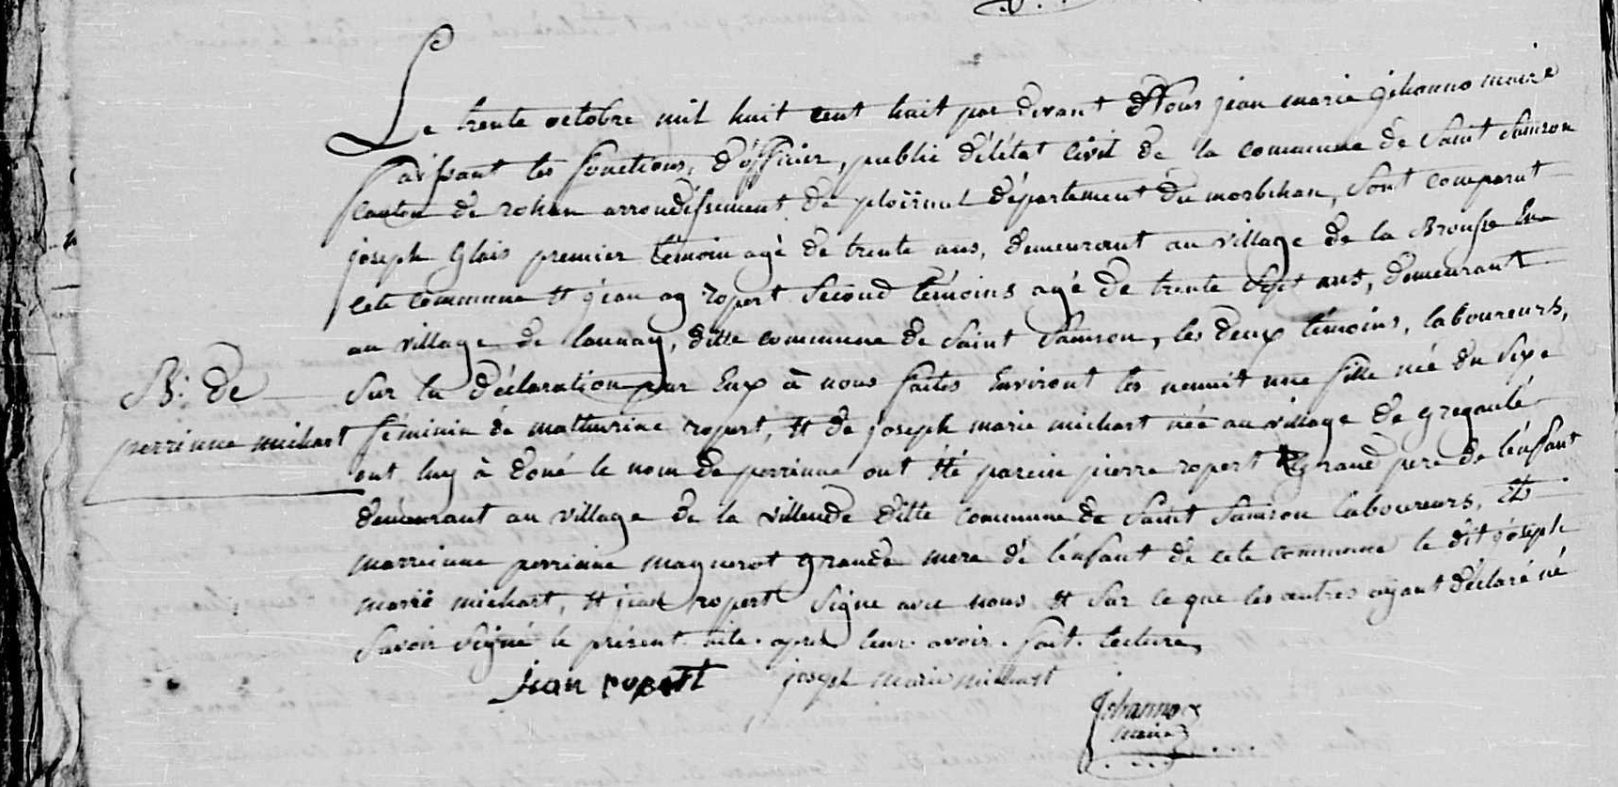 Le trente octobre mil huit cent huit par devant Nous jean marie gihanno maire
faissant les fonctions, d'officier, public d'élétat Civil de la commune de Saint Samson
canton de rohan arrondissement de ploërmel département du morbihan, Sont comparut
joseph Glais premier témoin agé de trente ans, demeurant au village de la Brousse En
cete commune Et jean ropert Second témoins agé de trente Sept ans, demeurant
au village de launay, ditte commune de Saint Samson, les deux témoins, laboureurs,
B: de
perrinne michart
Sur la déclaration par Eux à nous faites Environt les nenuit une fille né du Sexe
féminin de mathurine ropert, Et de joseph marie michart née au village de gregaulé
ont luy à doné le nom de perrinne ont Eté parein pierre ropert grand pere de lénfant
demeurant au village de la villeude ditte commune de Saint Samson laboureurs, Et
marreinne perrinne maynerot grande mere de lénfant de cete commune le dit joseph
marie michart, Et jean ropert Signe avec nous Et Sur ce que les autres ayant déclaré né
Savoir Signé le présent apres leur avoir fait lecture,
jean ropert joseph marie michart
Jehanno
maire